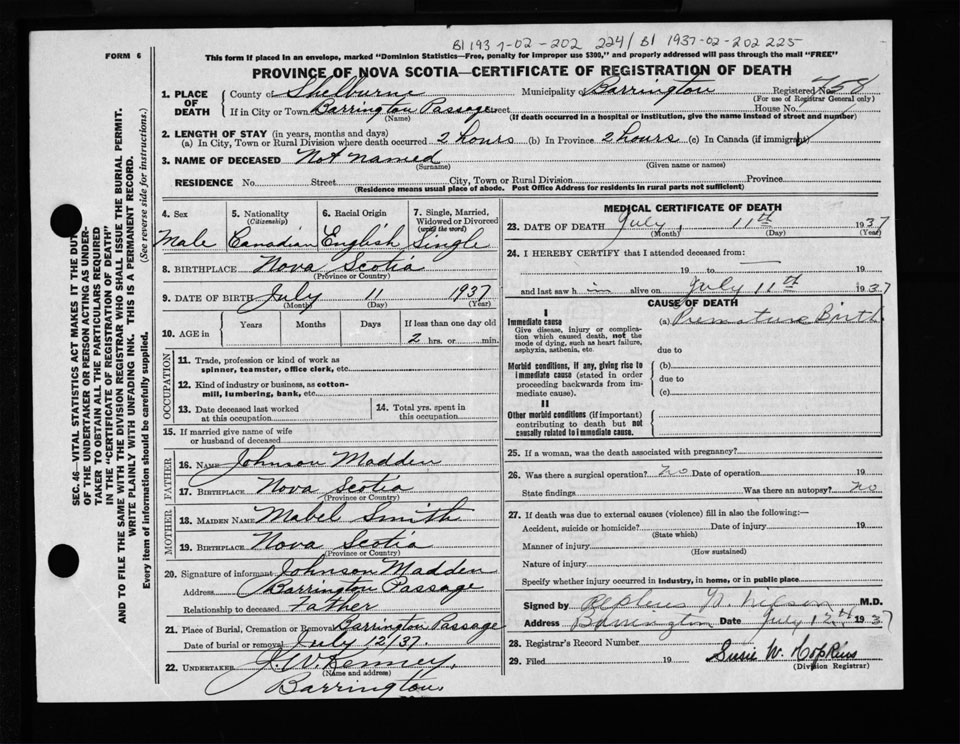 BI 1937-02-202 224/ BI 1937-02-202 225
FORM 6
This form if placed in an envelope, marked "Dominion Statistics—Free, penalty for improper use $300," and properly addressed will pass through the mail "FREE"
PROVINCE OF NOVA SCOTIA—CERTIFICATE OF REGISTRATION OF DEATH
1. PLACE OF DEATH
County of Shelburne Municipality of Barrington Registered No. 758
(For use of Registrar General only)
If in City or Town Barrington Passage Street House No.
(Name) (If death occurred in a hospital or institution, give the name instead of street and number)
2. LENGTH OF STAY (in years, months and days)
(a) In City, Town or Rural Division where death occurred 2 hours (b) In Province 2 hours (c) In Canada (if immigrant)
3. NAME OF DECEASED Not named
(Surname) (Given name or names)
RESIDENCE No. Street City, Town or Rural Division Province
(Residence means usual place of abode. Post Office Address for residents in rural parts not sufficient)
4. Sex Male
5. Nationality (Citizenship) Canadian
6. Racial Origin English
7. Single, Married, Widowed or Divorced (write the word) Single
8. BIRTHPLACE Nova Scotia
(Province or Country)
9. DATE OF BIRTH July 11 1937
(Month) (Day) (Year)
10. AGE in Years Months Days If less than one day old
2 hrs. or min.
OCCUPATION
11. Trade, profession or kind of work as spinner, teamster, office clerk, etc.
12. Kind of industry or business, as cotton-mill, lumbering, bank, etc.
13. Date deceased last worked at this occupation
14. Total yrs. spent in this occupation
15. If married give name of wife or husband of deceased
FATHER
16. NAME Johnson Madden
17. BIRTHPLACE Nova Scotia
(Province or Country)
MOTHER
18. MAIDEN NAME Mabel Smith
19. BIRTHPLACE Nova Scotia
(Province or Country)
20. Signature of informant Johnson Madden
Address Barrington Passage
Relationship to deceased Father
21. Place of Burial, Cremation or Removal Barrington Passage
Date of burial or removal July 12/37.
22. UNDERTAKER J. W. Kenney,
(Name and address)
Barrington.
MEDICAL CERTIFICATE OF DEATH
23. DATE OF DEATH July, 11th 1937
(Month) (Day) (Year)
24. I HEREBY CERTIFY that I attended deceased from:
19 to 19
and last saw h im alive on July 11th 1937
CAUSE OF DEATH
I
Immediate cause
Give disease, injury or complication which caused death, not the mode of dying, such as heart failure, asphyxia, asthenia, etc.
(a) Premature Birth
due to
Morbid conditions, if any, giving rise to immediate cause (stated in order proceeding backwards from immediate cause).
(b)
due to
(c)
II
Other morbid conditions (if important) contributing to death but not causally related to immediate cause.
25. If a woman, was the death associated with pregnancy?
26. Was there a surgical operation? no Date of operation 19
State findings Was there an autopsy? no
27. If death was due to external causes (violence) fill in also the following:—
Accident, suicide or homicide? Date of injury 19
(State which)
Manner of injury
(How sustained)
Nature of injury
Specify whether injury occurred in industry, in home, or in public place
Signed by M.D.
Address Barrington Date July 12th 1937
28. Registrar's Record Number
29. Filed 19 Susie W. Hopkins
(Division Registrar)
SEC. 46—VITAL STATISTICS ACT MAKES IT THE DUTY
OF THE UNDERTAKER OR PERSON ACTING AS UNDER-
TAKER TO OBTAIN ALL THE PARTICULARS REQUIRED
IN THE "CERTIFICATE OF REGISTRATION OF DEATH"
AND TO FILE THE SAME WITH THE DIVISION REGISTRAR WHO SHALL ISSUE THE BURIAL PERMIT.
WRITE PLAINLY WITH UNFADING INK. THIS IS A PERMANENT RECORD.
Every item of information should be carefully supplied. (See reverse side for instructions.)